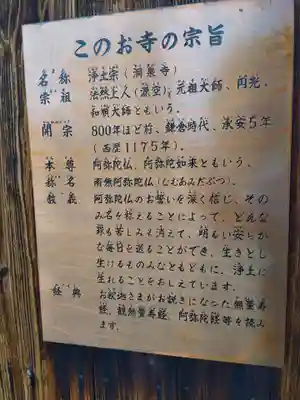 このお寺の宗旨
名称 浄土宗（洞泉寺）
宗祖 法然上人（源空）；元祖大師、円光、
和順大師ともいう。
開宗 800年ほど前、鎌倉時代、承安5年
（西暦1175年）。
本尊 阿弥陀仏、阿弥陀如来ともいう。
称名 南無阿弥陀仏（なむあみだぶつ）。
教義 阿弥陀仏のお誓いを深く信じ、その
み名を称えることによって、どんな
罪も苦しみも消えて、明るい安らか
な毎日を送ることができ、生きとし
生けるものみなともどもに、浄土に
生れることをおしえています。
経典 お釈迦さまがお説きになった無量寿
経、観無量寿経、阿弥陀経等を読み
ます。